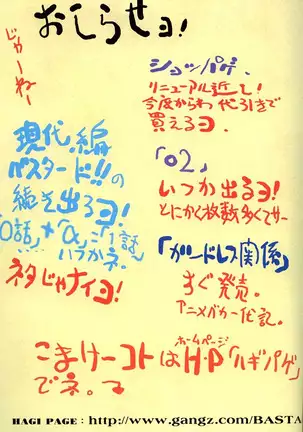 おしらせヨ!
じゃーねー
ショッパゲ、
リニューアル近し!
今度からわ代引きで
買えるヨ。
「02」
いつか出るヨ!
とにかく枚数多くてサー
「ガンドレス関係」
すぐ発売。
アニメバカ一代記。
現代編
バスタード!!の
続き出るヨ!
「0話」+「α」=「1話」
いつかネ。
ネタじゃナイヨ!
こまけーコトはH・P「ハギパゲ」
ホームページ
でネ。
HAGI PAGE : http://www.gangz.com/BASTA